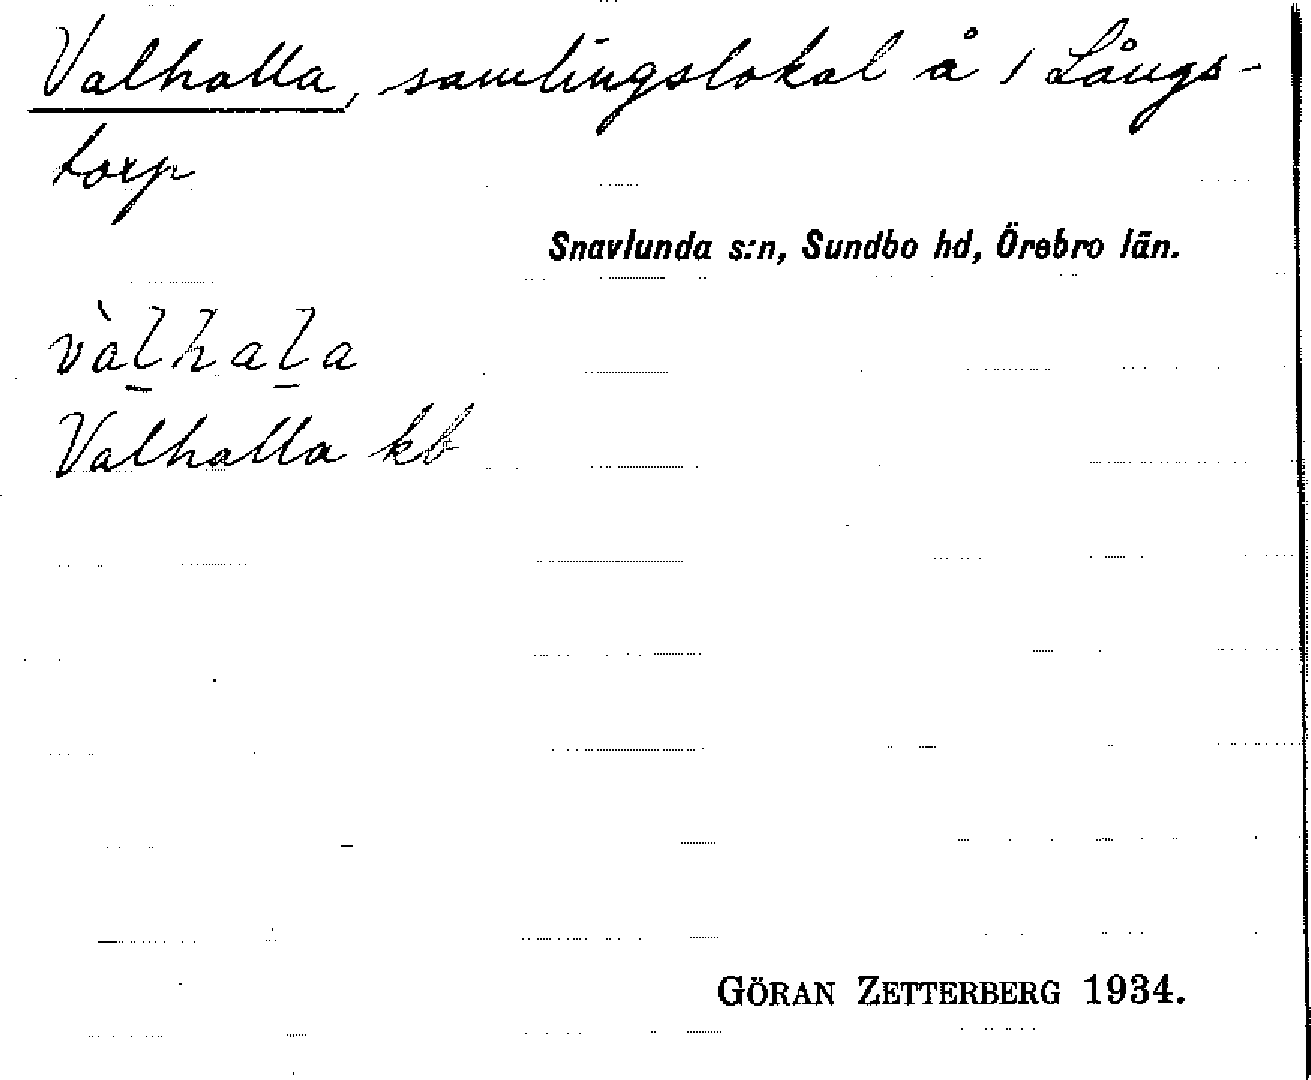 Valhalla, samlingslokal å 1 Långs-
torp
Snavlunda s:n, Sundbo hd, Örebro län.
vàl̠hal̠a
Valhalla kb
GÖRAN ZETTERBERG 1934.